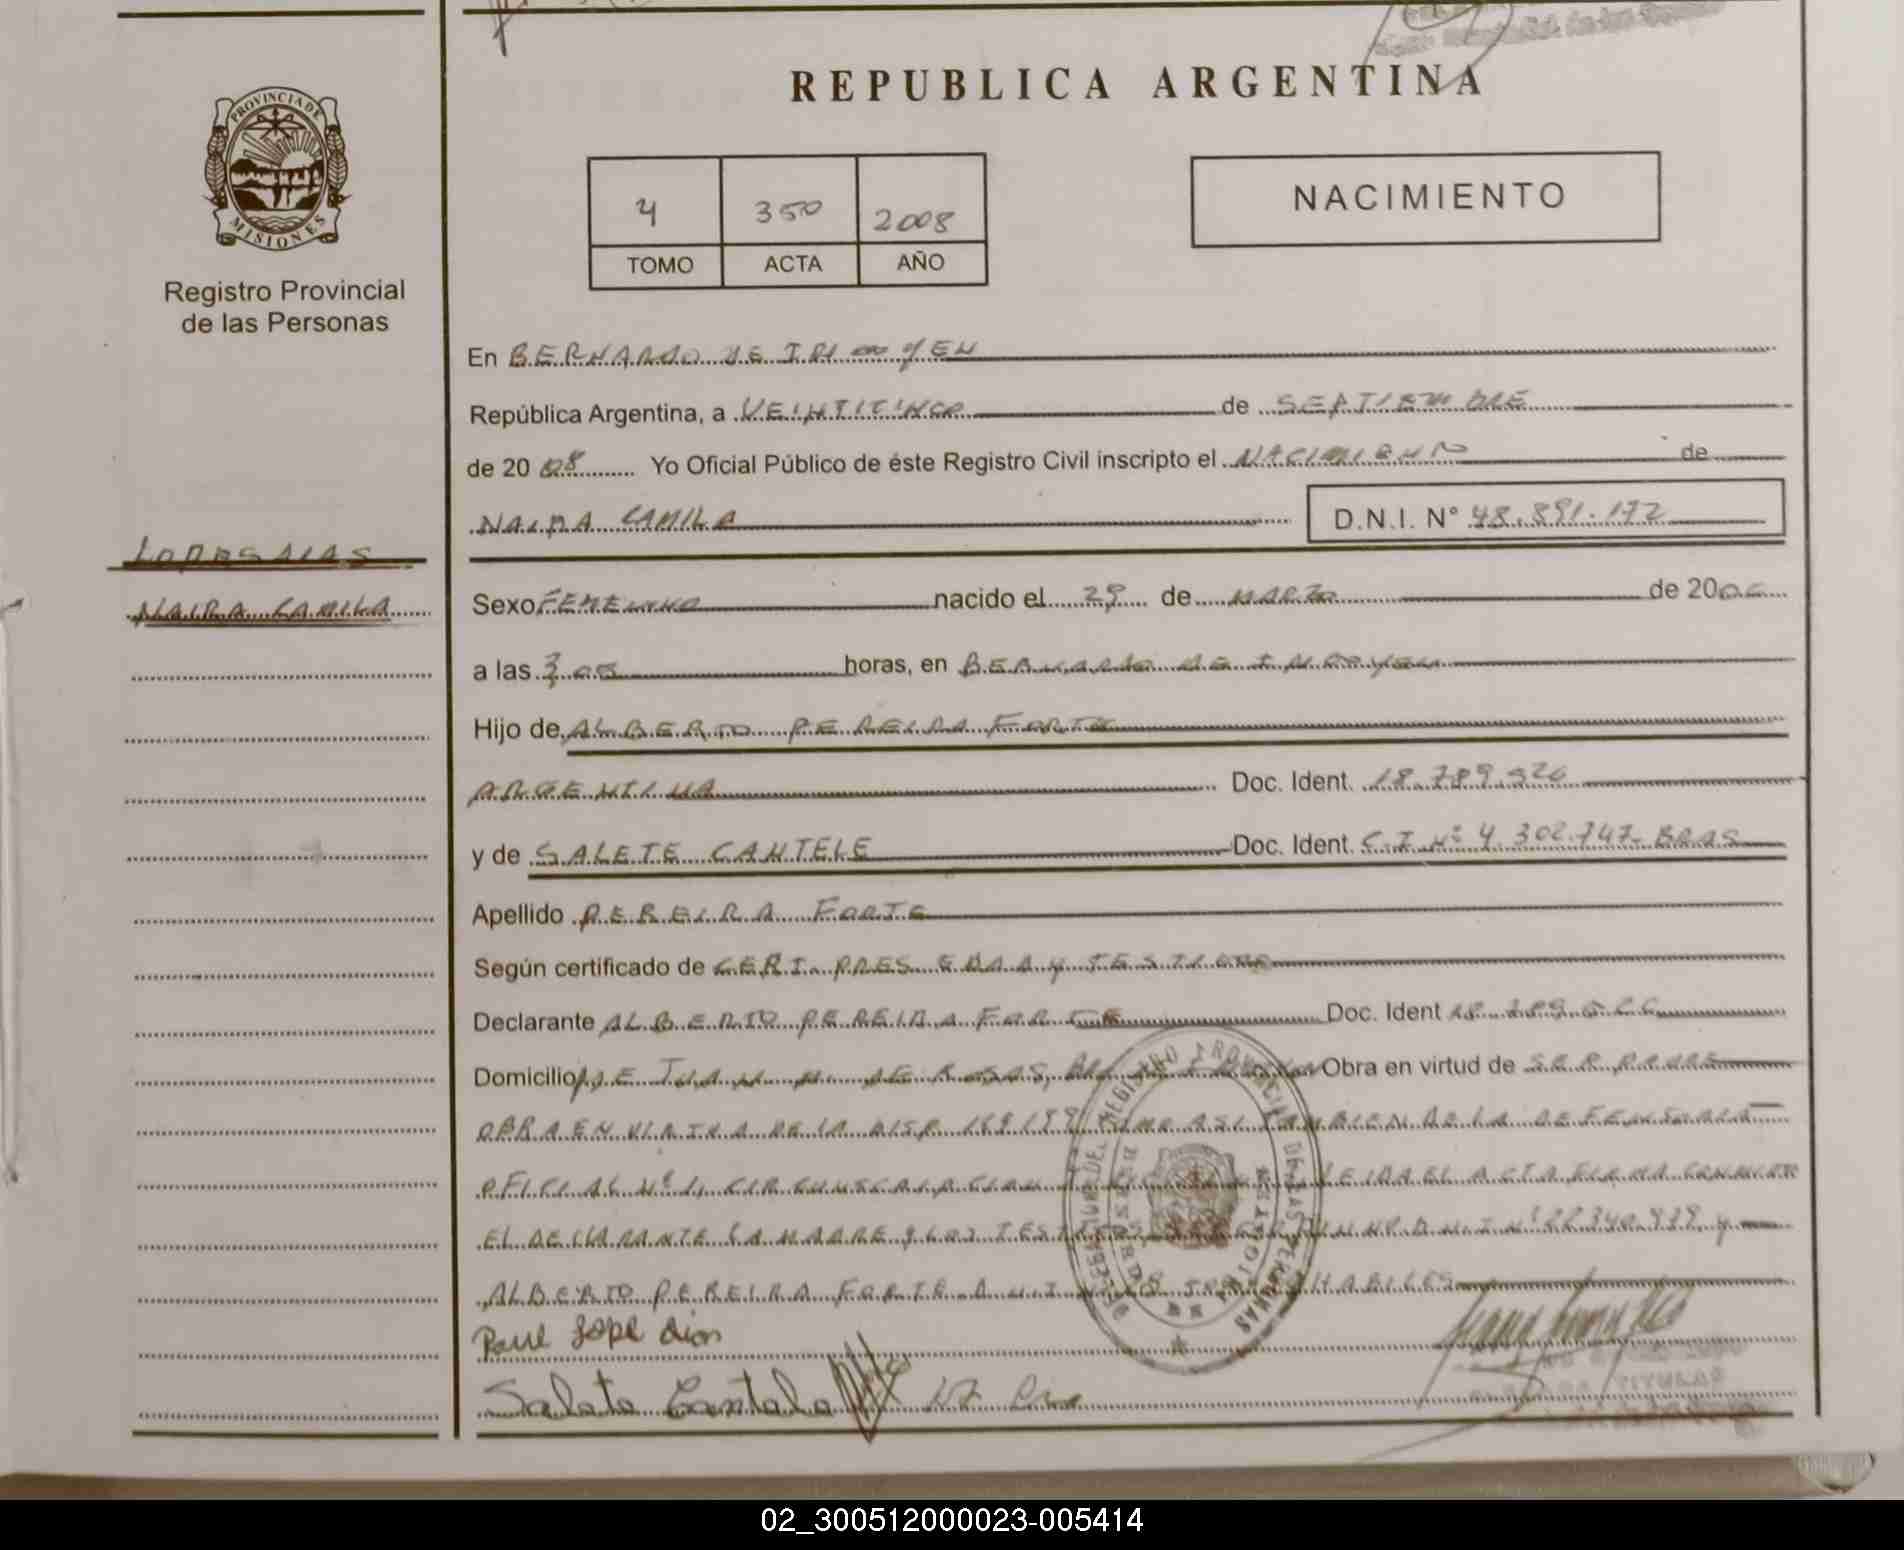 REPUBLICA ARGENTINA
PROVINCIA DE
MISIONES
Registro Provincial
de las Personas
4 350 2008
TOMO ACTA AÑO
NACIMIENTO
En BERNARDO DE IRIGOYEN
República Argentina, a VEINTICINCO de SEPTIEMBRE
de 2008 Yo Oficial Público de éste Registro Civil inscripto el NACIMIENTO de
NAIRA CAMILA D.N.I. N° 48.891.172
NAIRA CAMILA
Sexo FEMENINO nacido el 29 de MARZO de 20
a las horas, en BERNARDO DE IRIGOYEN
Hijo de ALBERTO PEREIRA FORTE
ARGENTINA Doc. Ident. 18.789.526
y de SALETE CANTELE Doc. Ident. C.I. Nº 4.302.747- BRAS
Apellido PEREIRA FORTE
Según certificado de CERT. PRES EDAD Y TESTIGOS
Declarante ALBERTO PEREIRA FORTE Doc. Ident
Domicilio JUAN M. DE ROSAS, Obra en virtud de SER PADRE
OBRA EN VIRTUD DE LA DISP COMO ASI TAMBIEN DE LA DEFENSORIA
OFICIAL Nº 1, CIRCUNSCRIPCION LEIDA EL ACTA FIRMA CONMIGO
EL DECLARANTE LA MADRE Y LOS TESTIGOS D.N.I. Nº 22.340.979 Y
ALBERTO PEREIRA FORTE D.N.I. HABILES
Salete Cantele
02_300512000023-005414